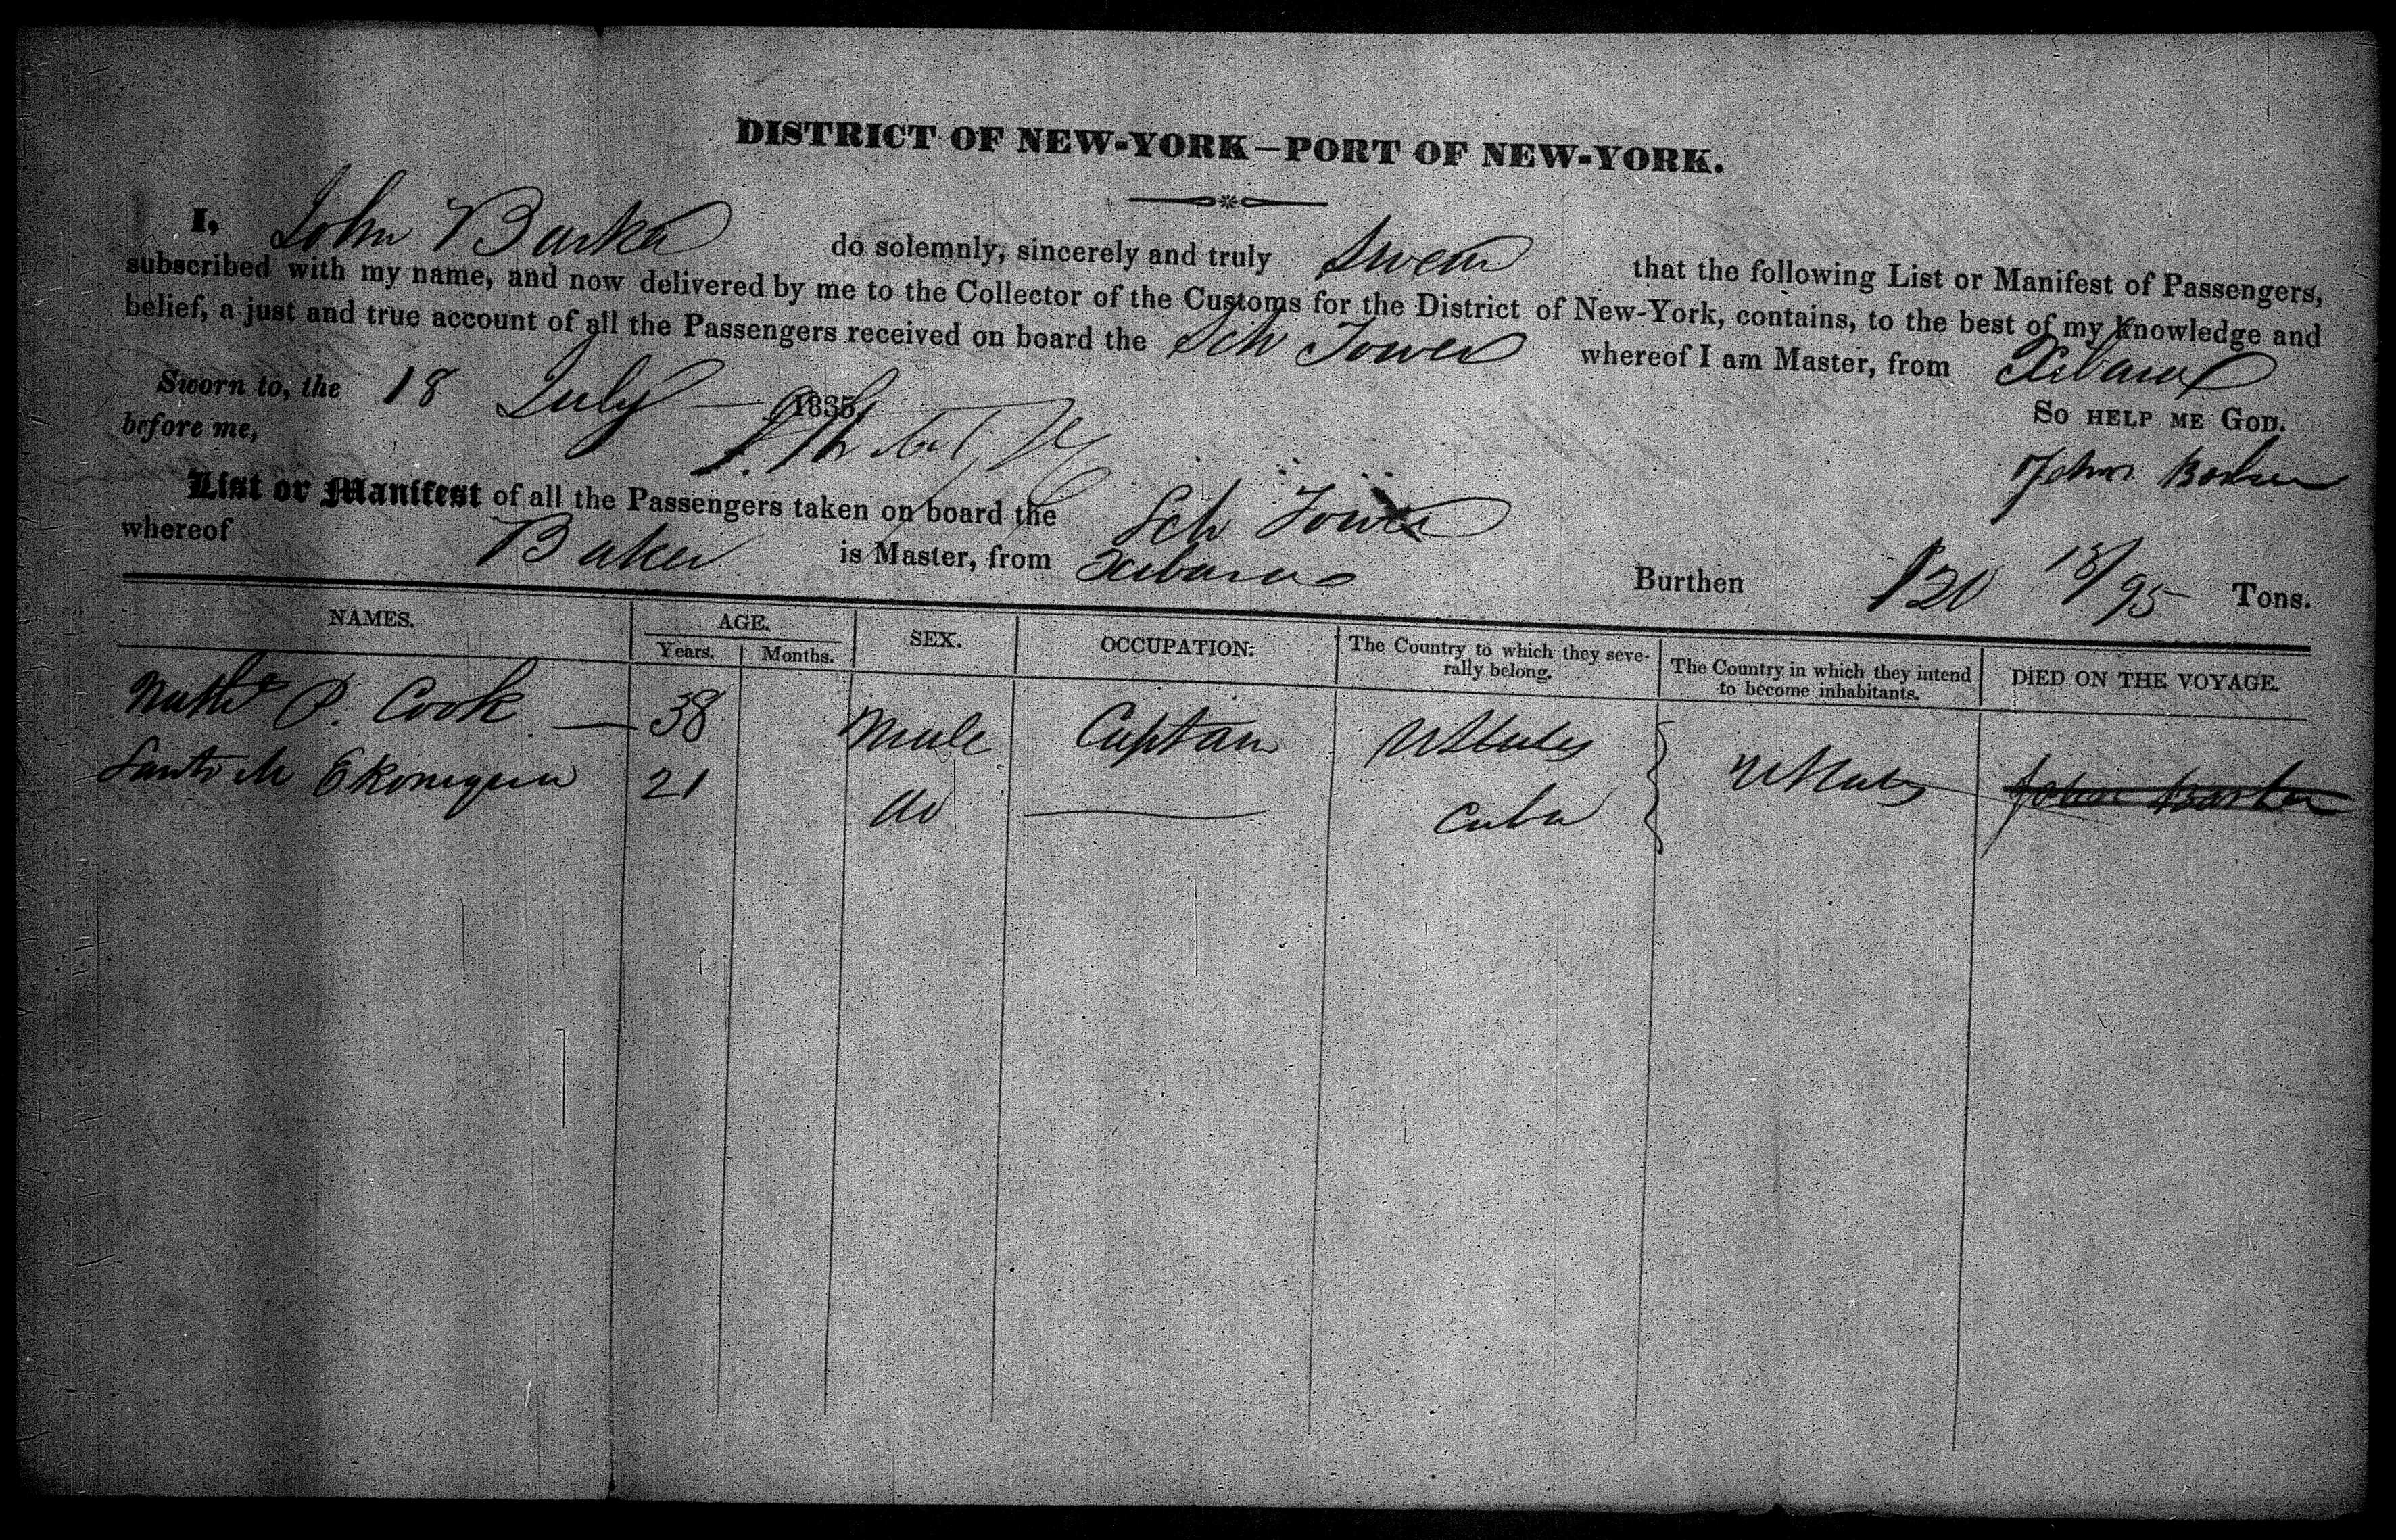 DISTRICT OF NEW-YORK—PORT OF NEW-YORK.
I, John Barker do solemnly, sincerely and truly Swear that the following List or Manifest of Passengers,
subscribed with my name, and now delivered by me to the Collector of the Customs for the District of New-York, contains, to the best of my knowledge and
belief, a just and true account of all the Passengers received on board the Sch Tower whereof I am Master, from Xibara
Sworn to, the 18 July — 1835 So HELP ME GOD.
before me,
John Barker
List or Manifest of all the Passengers taken on board the Sch Tower
whereof Baker is Master, from Xibara Burthen 120 18/95 Tons.
NAMES. AGE. SEX. OCCUPATION. The Country to which they seve-rally belong. The Country in which they intend to become inhabitants. DIED ON THE VOYAGE.
Years. Months.
P. Cook — 38 Male Captain UStates UStates John Barker
21 do — Cuba